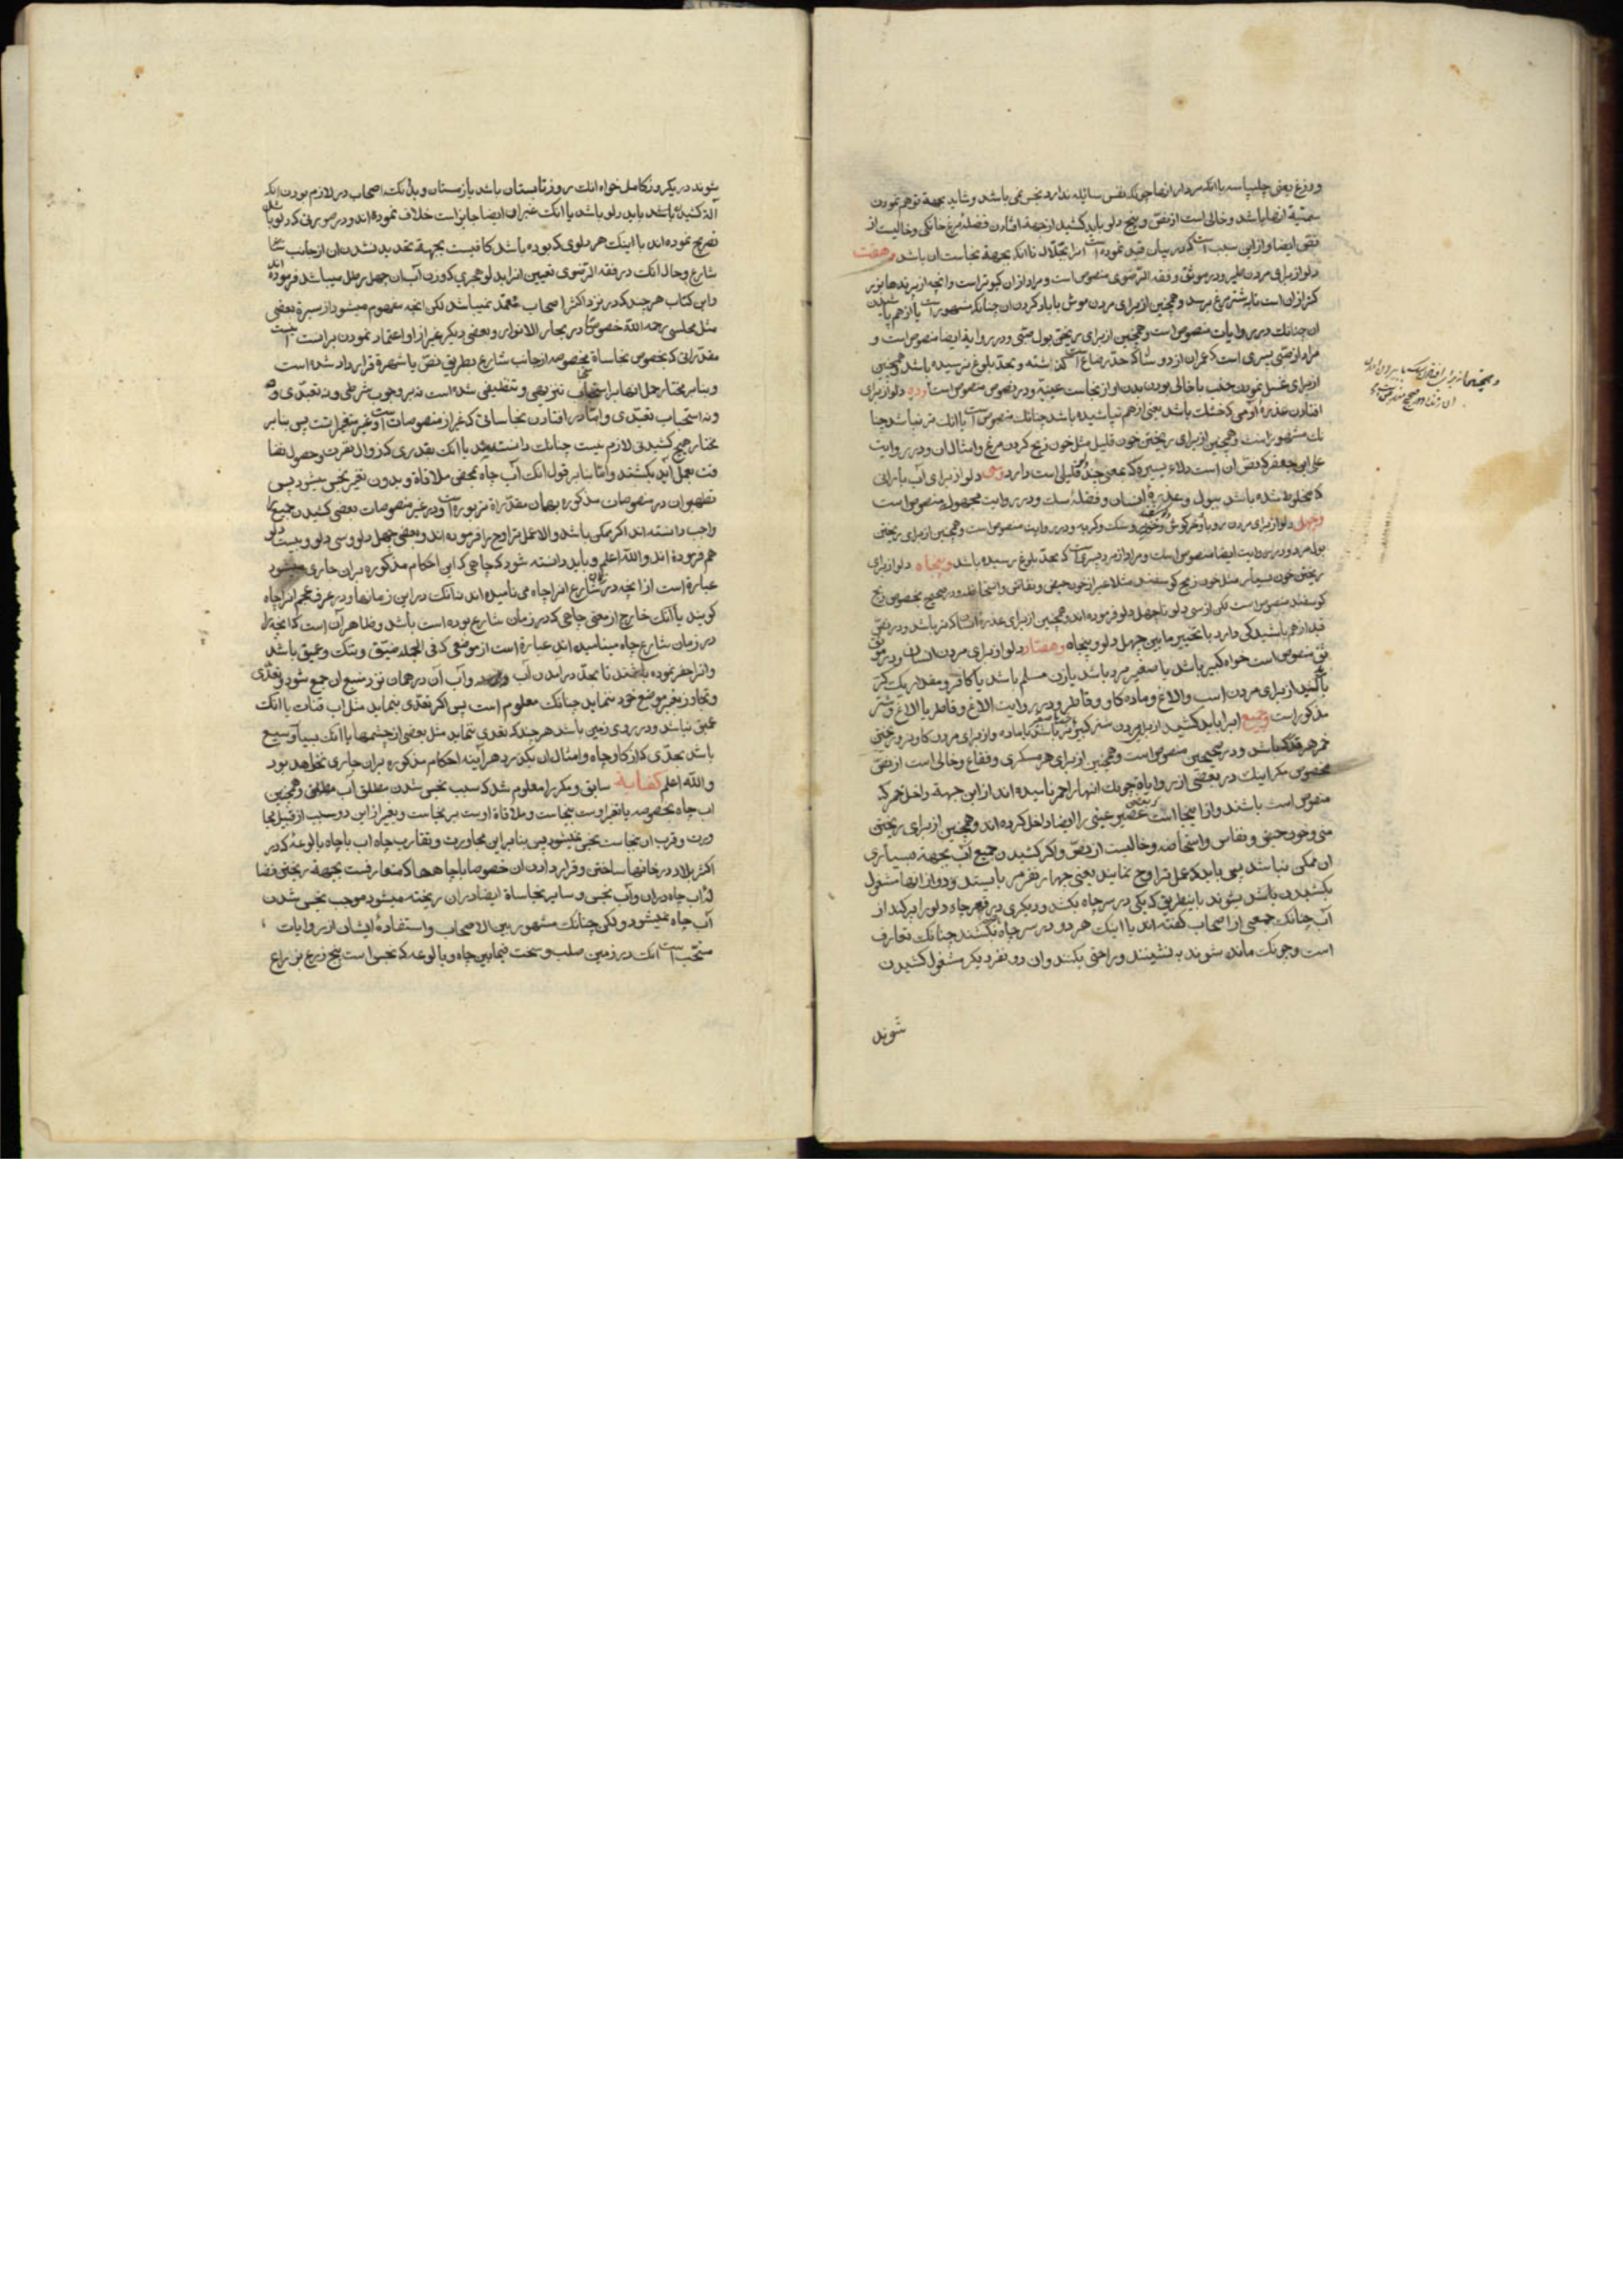 و وزغ یعنی چلپاسه با انکه مردار انها چونکه نفس سائله ندارد نجس نمی باشد و شاید بجهة توهم نمودن
سمیّة انها باشد و خالی است از نصّ و پنج دلو باید کشید از جهة افتادن فضلهٔ مرغ خانکی و خالیست از
نصّ ایضا و از این سبب است که در بیان قید نموده است انرا بجلّال تا انکه بجهة نجاست ان باشد و هفت
دلو از برای مردن طیر و در موثق و فقه الرّضوی منصوص است و مراد از ان کبوتر است و انچه از پرندها بزر
کتر از ان است تا بشتر مرغ برسد و همچنین از برای مردن موش با باد کردن ان چنانکه مشهور است یا از هم پاشیدن
ان چنانکه در روایات منصوص است و همچنین از برای ریختن بول صبّی و در روایة ایضا منصوص است و
مراد از صبّی پسری است که عمر ان از دو سال که حدّ رضاع است گذشته و بحدّ بلوغ نرسیده باشد و همچنین
از برای غسل نمودن جنب با خالی بودن بدن او از نجاست عینیّه و در نصوص منصوص است و ده دلو از برای
افتادن عذرهٔ آدمی که خشک باشد یعنی از هم نپاشیده باشد چنانکه منصوص است یا انکه تر نباشد چنا
نکه مشهور است و همچنین از برای ریختن خون قلیل مثل خون ذبح کردن مرغ و امثال ان و در روایت
علی ابن جعفر که نصّ ان است دلاء یسیره که بمعنی چند دلو قلیلی است دارد و سی دلو از برای آب بارانی
که مخلوط شده باشد ببول و عذرهٔ انسان و فضلهٔ سک و در روایت مجهوله منصوص است
و چهل دلو از برای مردن روباه و خرکوش و خوک و سک و کربه و در روایت منصوص است و همچنین از برای ریختن
بول مرد و در روایت ایضا منصوص است و مراد از مرد پسری است که بحدّ بلوغ رسیده باشد و پنجاه دلو از برای
ریختن خون بسیار مثل خون ذبح کوسفند مثلا غیر از خون حیض و نفاس و استحاضه و در صحیح بخصوص ذبح
کوسفند منصوص است لکن از سی دلو تا چهل دلو فرموده اند و همچنین از برای عذرهٔ انسان که تر باشد و در نصّ
قید از هم پاشیدکی دارد با تخییر ما بین چهل دلو و پنجاه و هفتاد دلو از برای مردن انسان و در مو
ثق منصوص است خواه کبیر باشد یا صغیر مرد باشد یا زن مسلم باشد یا کافر و مقدار یک کرّ
باید کشید از برای مردن اسب و الاغ و ماده کاو و قاطر و در روایت الاغ و قاطر یا الاغ و شتر
مذکور است و جمیع انرا باید کشید از برای مردن شتر کبیر نر باشد یا ماده و از برای مردن کاو نر و ریختن
خمر هر قدر که باشد و در صحیحین منصوص است و همچنین از برای هر مسکری و فقاع و خالی است از نصّ
مخصوص مکر اینکه در بعضی از روایاة چونکه انها را خمر نامیده اند از این جهة داخل خمر که
منصوص است باشند و از اینجا است که بعضی عصیر عنبی را ایضا داخل کرده اند و همچنین از برای ریختن
منی و خون حیض و نفاس و استحاضه و خالیست از نصّ و اکر کشیدن جمیع آب بجهة بسیاری
ان ممکن نباشد پس باید که عمل تراوح نمایند یعنی چهار نفر مرد بایستند و دو از انها مشغول
بکشیدن باشد بشوند باینطریق که یکی در سر چاه بکشد و دیکری در قعر چاه دلو را پر کند از
آب چنانکه جمعی از اصحاب کفته اند یا اینکه هر دو در سر چاه بکشند چنانکه تعارف
است و چونکه مانده شوند بنشینند و راحتی بکنند و ان دو نفر دیکر مشغول کشیدن
شوند
شوند در یکروز کامل خواه انکه روز تابستان باشد یا زمستان و بدانکه اصحاب در لازم بودن انکه
آلهٔ کشیدن باشد باید دلو باشد یا انکه غیر ان ایضا جایز است خلاف نموده اند و در صورتی که دلو باشد
تصریح نموده اند با اینکه هر دلوی که بوده باشد کافیست بجهة تحدید نشدن ان از جانب
شارع و حال انکه در فقه الرّضوی تعیین انرا بدلو هجری که وزن آب ان چهل رطل میباشد فرموده اند
و این کتاب هر چند که در نزد اکثر اصحاب معتمد نمیباشد لکن انچه مفهوم میشود از سیرهٔ بعضی
مثل مجلسی رحمه اللّه خصوصا در بحار الانوار و بعضی دیکر غیر از او اعتماد نمودن بر انست
مقدّراتی که بخصوص نجاساة بخصوصه از جانب شارع بطریق نصّ یا شهرة قرارداد شده است
و بنابر مختار حمل انها بر استحباب تنزیهی و تنظیفی شده است نه بر وجوب شرطی و نه تعبّدی و
و نه استحباب تعبّدی و امّا در افتادن نجاساتی که غیر از منصوصات است و غیر متغیّر است پس بنابر
مختار هیچ کشیدنی لازم نیست چنانکه دانسته شد یا انکه بقدری که زوال نفرت و حصول نضا
فت بعمل آید بکشند و امّا بنابر قول انکه آب چاه بمحض ملاقاة و بدون تغیّر نجس میشود پس
تطهیر ان در منصوصات مذکوره بهمان مقدّراة مزبوره است و در غیر منصوصات بعضی کشیدن جمیع را
واجب دانسته اند اکر ممکن باشد و الا عمل تراوح را فرموده اند و بعضی چهل دلو و سی دلو و بیست دلو
هم فرموده اند و اللّه اعلم و باید دانسته شود که چاهی که این احکام مذکوره بران جاری میشود
عبارة است از انچه در زمان شارع انرا چاه می نامیده اند نه انکه در این زمانها و در عرف عجم انرا چاه
کویند یا انکه خارج از معنی چاهی که در زمان شارع بوده است باشد و ظاهر آن است که انچه را
در زمان شارع چاه مینامیده اند عبارة است از موضعی که فی الجمله ضیّق و تنک و عمیق باشد
و انرا حفر نموده باشند تا بحدّ در امدن آب و آب آن در همان نزد منبع ان جمع شود و تعدّی
و تجاوز بغیر موضع خود ننماید چنانکه معلوم است پس اکر تعدّی بنماید مثل اب قنات یا انکه
عمیق نباشد و در روی زمین باشد هر چند که تعدی ننماید مثل بعضی از چشمها یا انکه بسیار وسیع
باشد بحدّی که از کاو چاه و امثال ان بکذرد هر آینه احکام مذکوره بران جاری نخواهد بود
و اللّه اعلم کفایة سابق و مکررا معلوم شد که سبب نجس شدن مطلق آب مطلق و همچنین
اب چاه بخصوصه یا تغیر اوست بنجاست و ملاقاة اوست بر نجاست و بغیر از این دو سبب از قبیل مجا
ورت و قرب ان نجاست نجس نمیشود پس بنابراین مجاورت و تقارب چاه اب با چاه بالوعهٔ که در
اکثر بلاد در خانها ساختن و قرار دادن ان خصوصا با چاهها که متعارفست بجهة ریختن فضا
لهٔ اب چاه دران و آب نجس و سایر نجاساة ایضا دران ریخته میشود موجب نجس شدن
آب چاه نمیشود ولکن چنانکه مشهور بین الاصحاب و استفادهٔ ایشان از روایات
مستحّب است انکه در زمین صلب و سخت فیمابین چاه و بالوعه که نجس است پنج ذرع بذراع